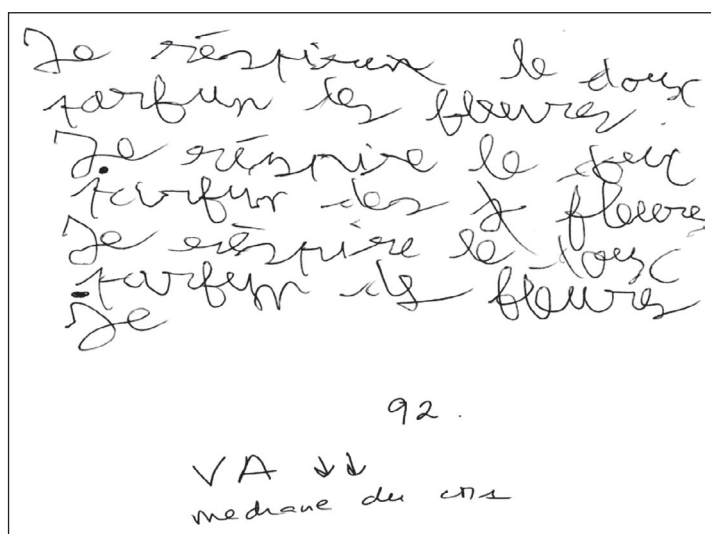 Je réspirem le doux
parfun les fleuvres.
Je réspire le doux
parfun des fleuvres
Je réspire le doux
parfum des fléuvres
Je
92.
VA ↓↓
mediane du